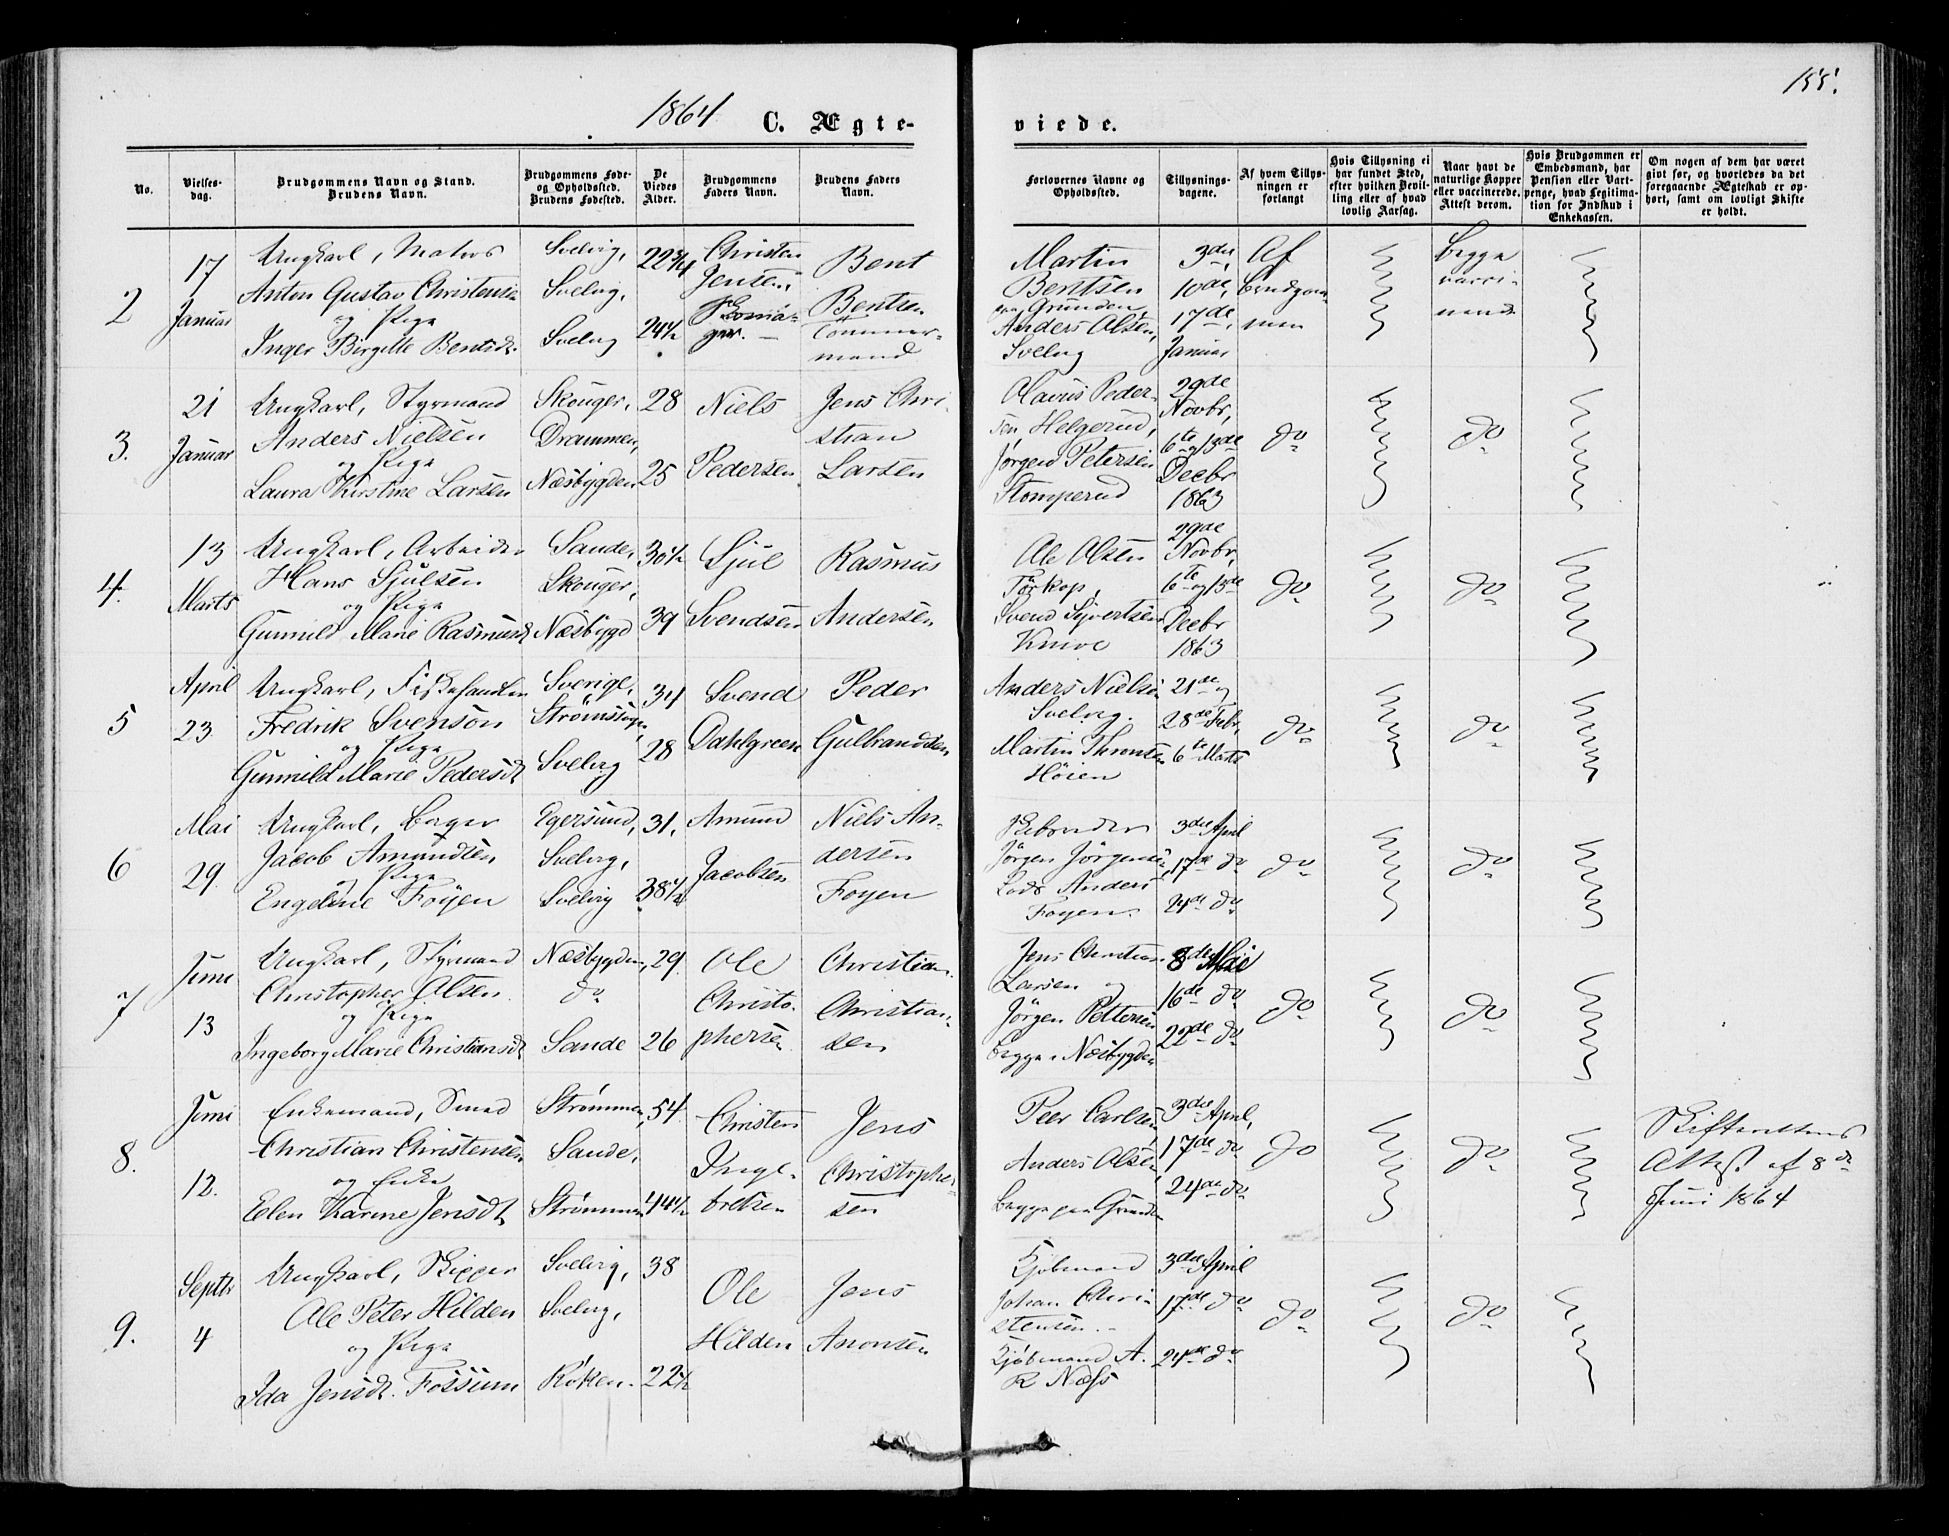 1864
C. Ægte-
viede.
155.
No.
Vielses-
dag.
Brudgommens Navn og Stand.
Brudens Navn.
Brudgommens Føde-
og Opholdssted.
Brudens Fødested.
De
Viedes
Alder.
Brudgommens
Faders Navn.
Brudens Faders
Navn.
Forlovernes Navne og
Opholdssted.
Tillysnings-
dagene.
Af hvem Tillys-
ningen er
forlangt
Hvis Tillysning ei
har fundet Sted,
efter hvilken Bevil-
ling eller af hvad
lovlig Aarsag.
Naar havt de
naturlige Kopper
eller vaccinerede.
Attest derom.
Hvis Brudgommen er
Embedsmand, har
Pension eller Vart-
penge, hvad Legitima-
tion for Indskud i
Enkekassen.
Om nogen af dem har været
givt før, og hvorledes da det
foregaaende Ægteskab er op-
hørt, samt om lovligt Skifte
er holdt.
2
17
Januar
Ungkarl, Matros
Anton Gustav Christensen
og Pige
Inger Birgitte Bentsdt.
Svelvig,
Svelvig,
Svelvig
22 3/4
24 1/2
Christen
Jensen,
Bent
Bentsen
Tømmer-
mand
Martin
Bentsen
paa Grunden,
Anders Olsen,
Svelvig
3die,
10de,
17de,
Januar
Af
Brudgom-
men
Begge
vacci-
nerede
3.
21
Januar
Ungkarl, Styrmand
Anders Nielsen
og Pige
Laura Kirstine Larsen
Skouger,
Drammen,
Næsbygden
28
25
Niels
Pedersen
Jens Chri-
stian
Larsen
Olavus Peder-
sen Helgerud,
Jørgen Petersen
Stomperud
29de
Novbr,
6te og 13de
Decbr
1863
do
do
4.
13
Marts
Ungkarl, Arbeider
Hans Sjulsen
og Pige
Gunnild Marie Rasmusdt
Sande,
Skouger,
Næsbygd
30 1/2
39
Sjul
Svendsen
Rasmus
Andersen
Ole Olsen
Tørkop,
Svend Syvertsen
Knive
29de
Novbr,
6te og 13de
Decbr
1863
do
do
5
April
23
Ungkarl, Fiskehandler
Fredrik Svenson
og Pige
Gunnild Marie Pedersdt
Sverige,
Strømstad,
Svelvig
34
28
Svend
Dahlgreen
Peder
Gulbrandsen
Anders Nielsen
Svelvig.
Martin Thronsen
Høien
21de og
28de Febr,
6te Marts
do
do
6
Mai
29
Ungkarl, Bager
Jacob Amundsen
og Pige
Engeline Foyen
Egersund,
Svelvig,
Svelvig
31,
38 1/2
Amund
Jacobsen
Niels An-
dersen
Foyen
Rebslager
Jørgen Jørgensen
Lods Anders
Foyen
3die April
17de do
24de do
do
do
7
Juni
13
Ungkarl, Styrmand
Christopher Olsen
og Pige
Ingeborg Marie Christiansdt
Næsbygden,
do
Sande
29
26
Ole
Christo-
phersen
Christian
Christian-
sen
Jens Christian
Larsen og
Jørgen Pettersen
begge i Næsbygden
8de Mai
16de do
22de do
do
do
8.
Juni
12.
Enkemand, Smed
Christian Christensen
og Enke
Elen Karine Jensdt
Strømmen,
Sande,
Strømmen
54
44 1/2
Christen
Inge-
bretsen
Jens
Christopher-
sen
Peer Carlsen,
Anders Olsen,
begge paa Grunden
3die April,
17de do
24de do
do
do
Skifterettens
Attest af 8de
Juni 1864
9.
Septbr
4
Ungkarl, Skipper
Ole Peter Hilden
og Pige
Ida Jensdt. Fossum
Svelvig,
Svelvig,
Røken.
38
22 1/2
Ole
Hilden
Jens
Aronsen
Kjøbmand
Johan Chri-
stensen.
Kjøbmand A.
R Næss
3die April
17de do
24de do
do
do